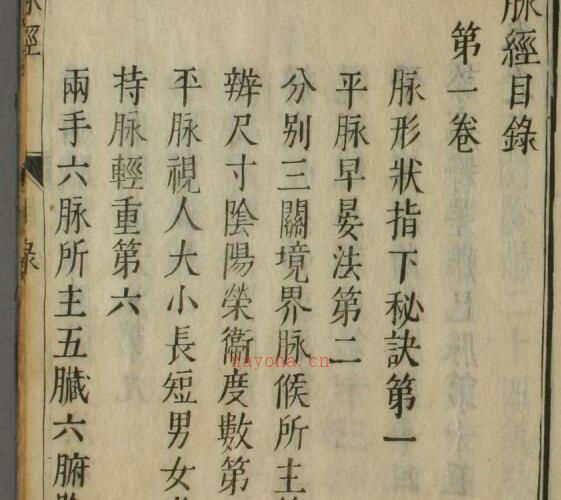 脉經目錄
第一卷
脉形狀指下秘訣第一
平脉早晏法第二
分别三關境界脉候所主
辨尺寸陰陽榮衞度數第
平脉視人大小長短男女
持脉輕重第六
兩手六脉所主五臟六腑
脉經
目錄
hayona.cn